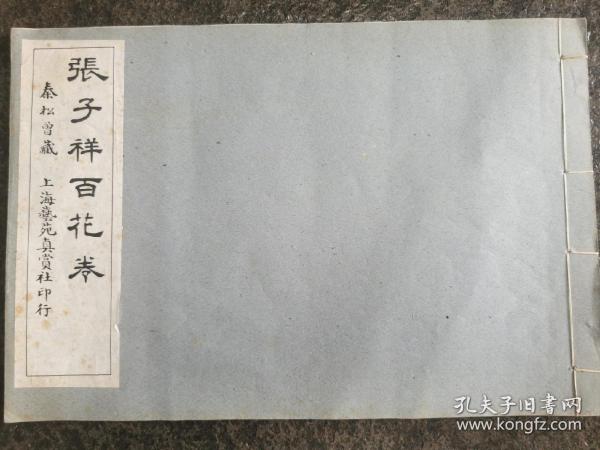 張子祥百花卷
秦松曾藏 上海藝苑真賞社印行
孔夫子旧书网
www.kongfz.com